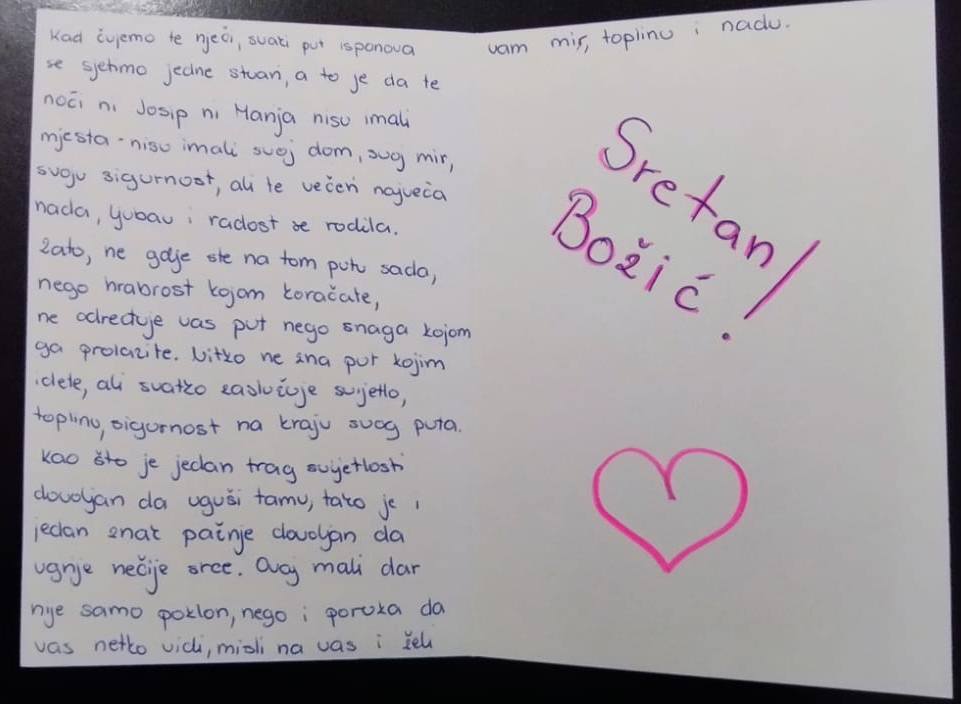 Kad čujemo te riječi, svaki put isponova
se sjetimo jedne stvari, a to je da te
noći ni Josip ni Marija nisu imali
mjesta - nisu imali svoj dom, svoj mir,
svoju sigurnost, ali te večeri najveća
nada, ljubav i radost se rodila.
Zato, ne gdje ste na tom putu sada,
nego hrabrost kojom koračate,
ne određuje vas put nego snaga kojom
ga prolazite. Nitko ne zna put kojim
idete, ali svatko zaslužuje svijetlo,
toplinu, sigurnost na kraju svog puta.
Kao što je jedan trag svijetlosti
dovoljan da uguši tamu, tako je i
jedan znak pažnje dovoljan da
ugrije nečije srce. Ovaj mali dar
nije samo poklon, nego i poruka da
vas netko vidi, misli na vas i želi
vam mir, toplinu i nadu.
Sretan
Božić!